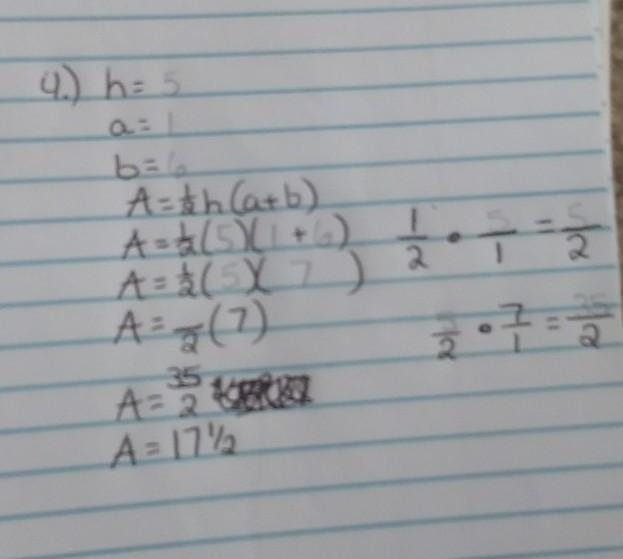 4.) h = 5
a = 1
b = 6
A = ½h(a+b)
A = ½(5)(1+6)
1/2 • 5/1 = 5/2
A = ½(5)(7)
A = /2(7)
5/2 • 7/1 = 35/2
A = 35/2
A = 17 1/2